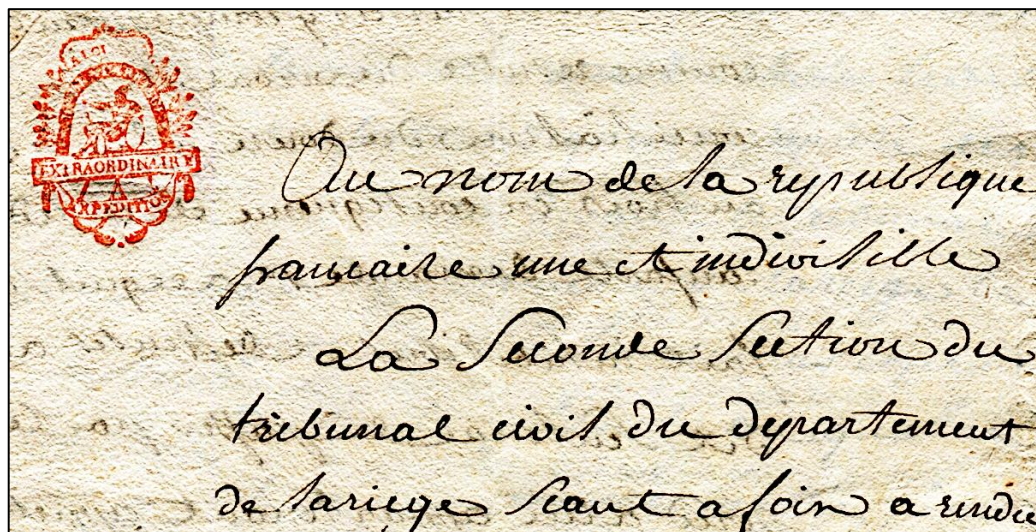 EXTRAORDINAIRE
A
EXPEDITION
Au nom de la republique
francaise une et indivisible
La Seconde Section du
tribunal civil du departement
de lariege seant a foix a rendu